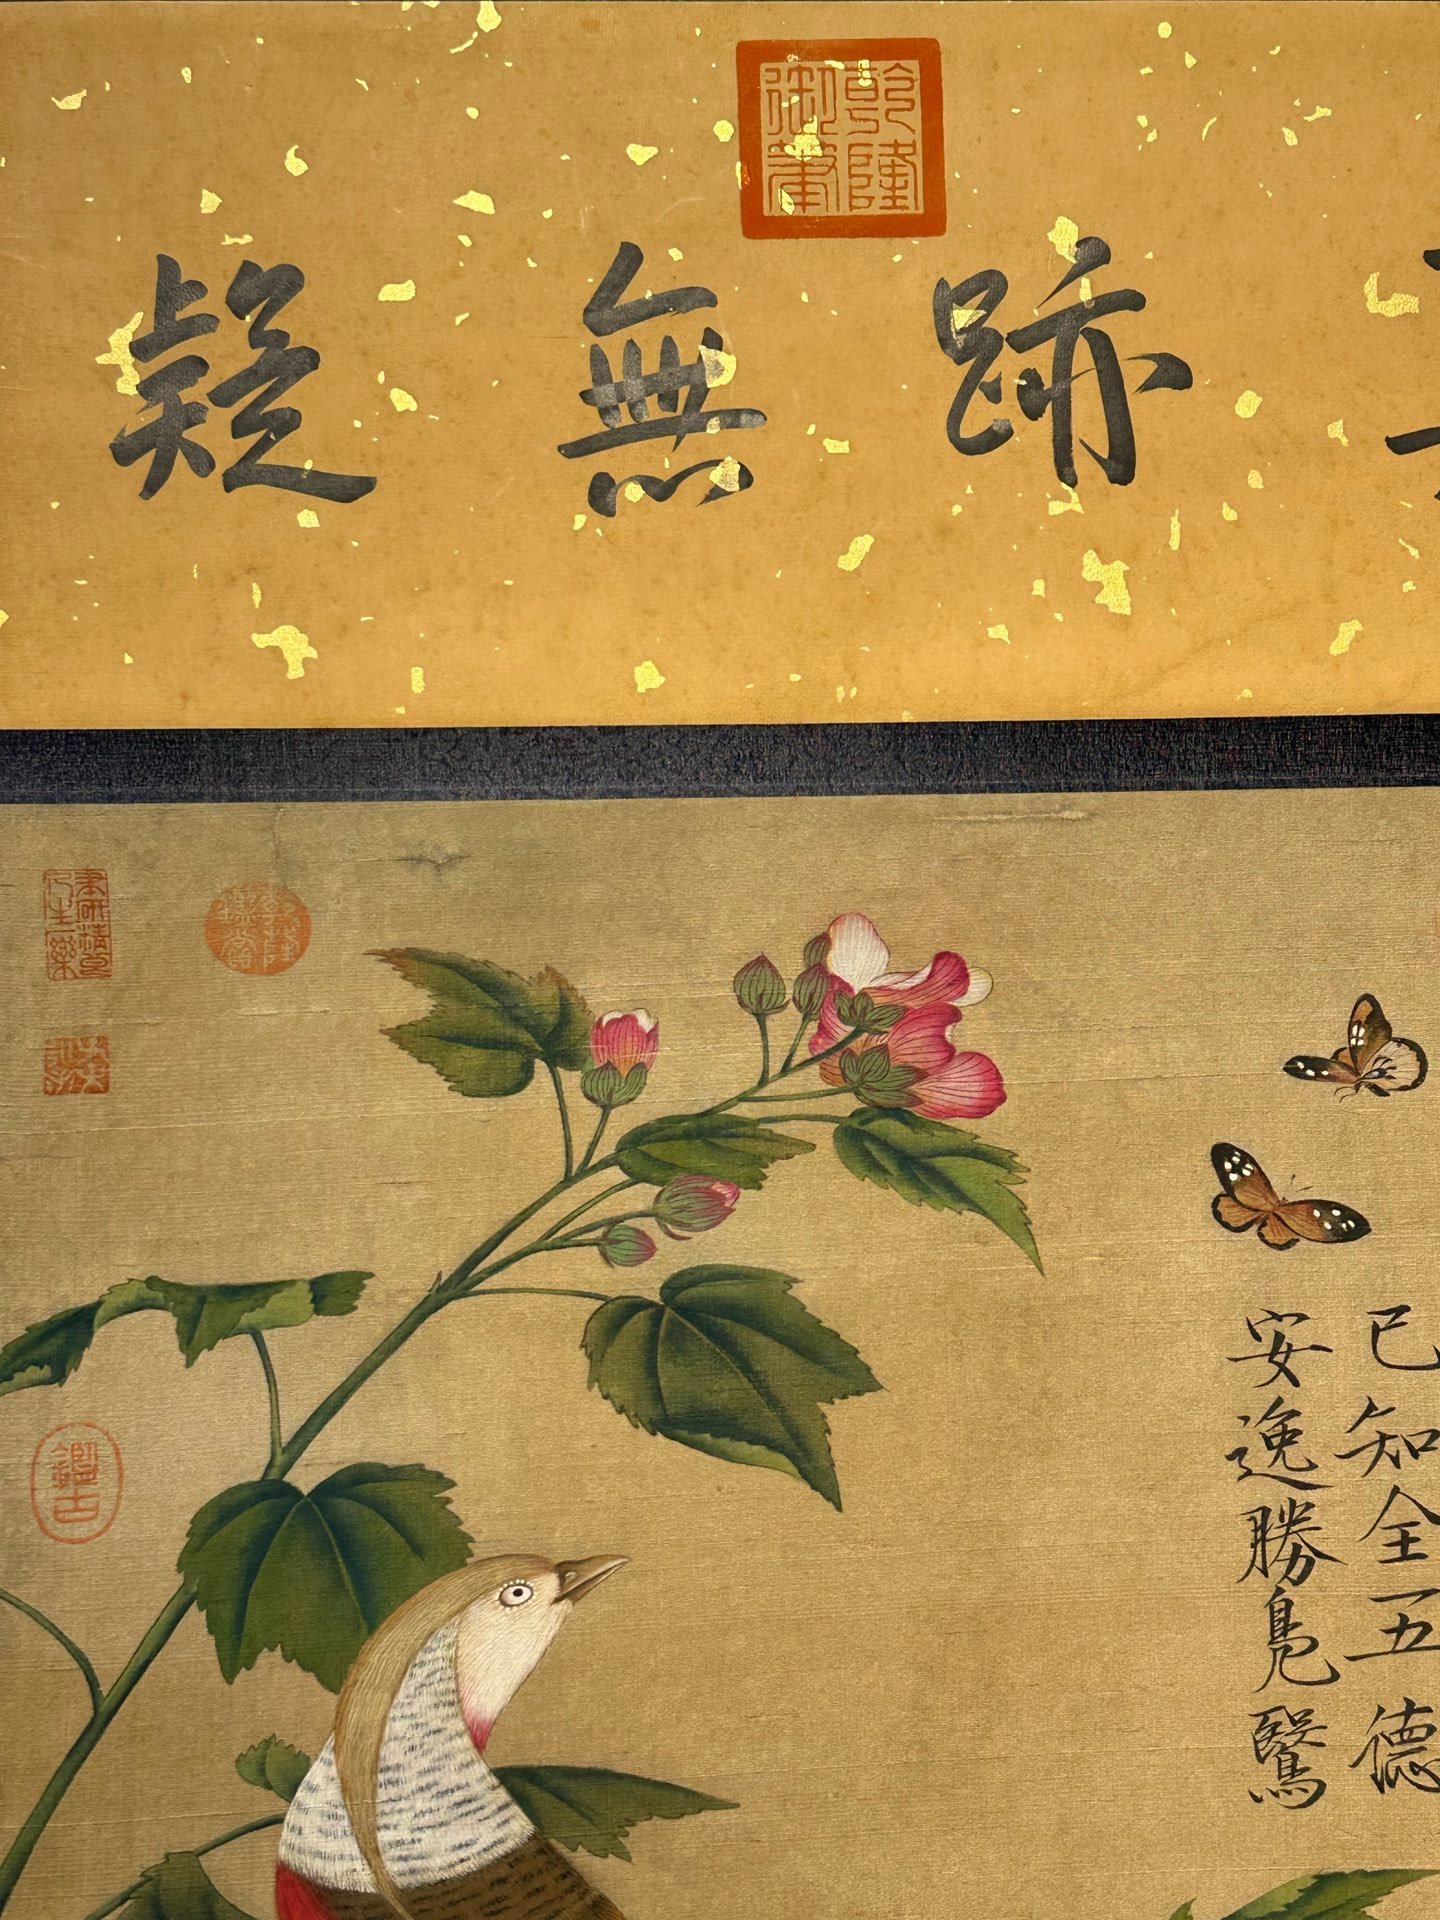 乾隆御筆
跡無疑
乾隆鑑賞
已知全五德
安逸勝鳧鷖
鑑古